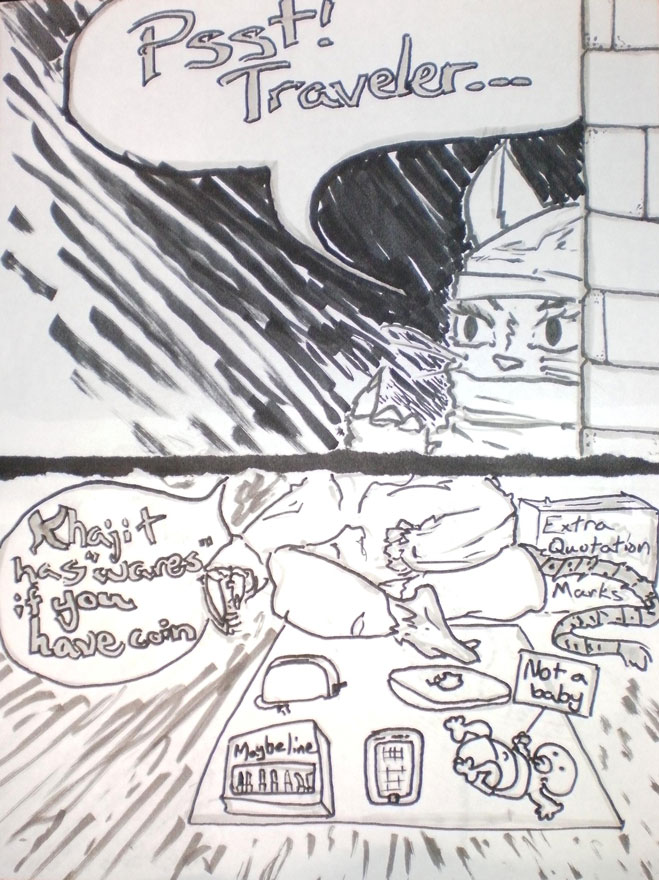 Psst!
Traveler...
Khajit
has "wares"
if you
have coin
Extra
Quotation
Marks
Not a
baby
Maybeline